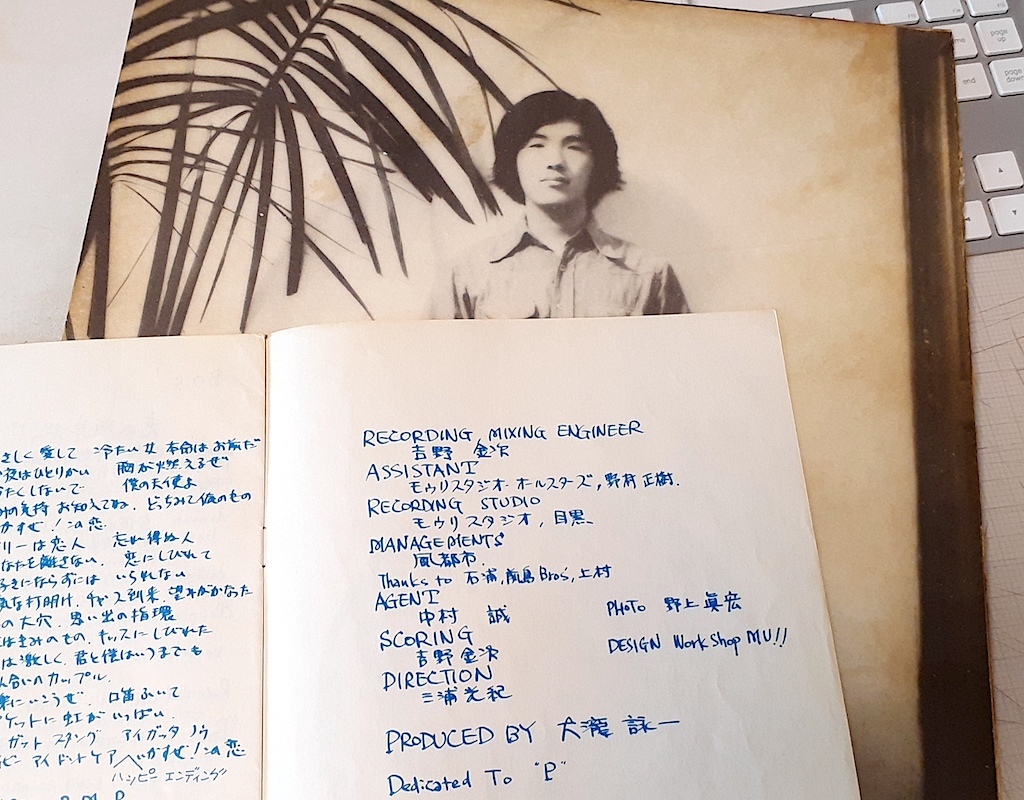 さしく愛して 冷たい女 本命はお前だ
夜はひとりかい 胸が燃えるぜ
たくしないで 僕の天使よ
の気持 お知入てね. どっちみて俺のもの
かすぜ!この恋
リーは恋人 忘れ得ぬ人
なたを離さない. 恋にしびれて
好きにならずには いられない
な打明け. チャンス到来. 望みがかなった
の大穴. 思い出の指環
はきみのもの. キッスにしびれた
は激しく. 君と僕はいつまでも
合いのカップル.
楽にいこうぜ. 口笛ふいて
ポケットに虹がいっぱい.
ガット スタング アイガッタ ノウ
ビー アイドントケア いかすぜ!この恋
ハッピー エンディング
RECORDING, MIXING ENGINEER
吉野 金次
ASSISTANT
モウリスタジオ オールスターズ, 野村正樹.
RECORDING STUDIO
モウリスタジオ, 目黒
MANAGEMENTS
風都市.
Thanks to 石浦, 前島 Bros', 上村
AGENT
中村 誠
SCORING
吉野金次
DIRECTION
三浦光紀
PHOTO 野上眞宏
DESIGN WorkShop MU!!
PRODUCED BY 大瀧 詠一
Dedicated To "P"
page up
end
page down